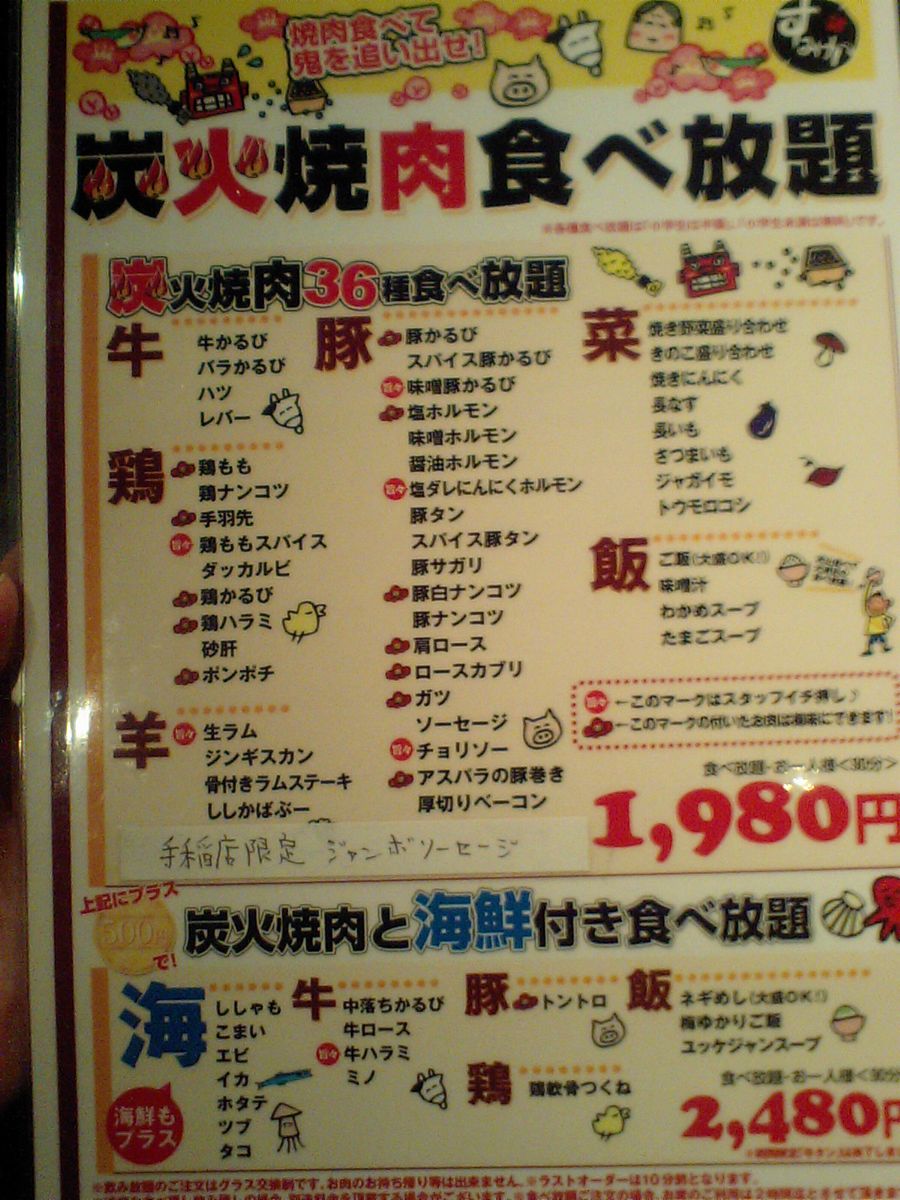 焼肉食べて
鬼を追い出せ!
炭火焼肉食べ放題
炭火焼肉36種食べ放題
牛
牛かるび
バラかるび
ハツ
レバー
鶏
鶏もも
鶏ナンコツ
手羽先
旨々 鶏ももスパイス
ダッカルビ
鶏かるび
鶏ハラミ
砂肝
ボンボチ
羊
旨々 生ラム
ジンギスカン
骨付きラムステーキ
ししかばぶー
豚
豚かるび
スパイス豚かるび
旨々 味噌豚かるび
塩ホルモン
味噌ホルモン
醤油ホルモン
旨々 塩ダレにんにくホルモン
豚タン
スパイス豚タン
豚サガリ
豚白ナンコツ
豚ナンコツ
肩ロース
ロースカブリ
ガツ
ソーセージ
旨々 チョリソー
アスパラの豚巻き
厚切りベーコン
菜
焼き野菜盛り合わせ
きのこ盛り合わせ
焼きにんにく
長なす
長いも
さつまいも
ジャガイモ
トウモロコシ
飯
ご飯(大盛OK!)
味噌汁
わかめスープ
たまごスープ
旨々 ←このマークはスタッフイチ押し♪
←このマークの付いたお肉は塩味にできます!
食べ放題・お一人様<90分>
1,980円
手稲店限定 ジャンボソーセージ
上記にプラス
500円
で!
炭火焼肉と海鮮付き食べ放題
海
海鮮も
プラス
ししゃも
こまい
エビ
イカ
ホタテ
ツブ
タコ
牛
中落ちかるび
牛ロース
旨々 牛ハラミ
ミノ
豚
トントロ
鶏
鶏軟骨つくね
飯
ネギめし(大盛OK!)
梅ゆかりご飯
ユッケジャンスープ
食べ放題・お一人様<90分
2,480円
※飲み放題のご注文はグラス交換制です。お肉のお持ち帰り等は出来ません。※ラストオーダーは10分前となります。